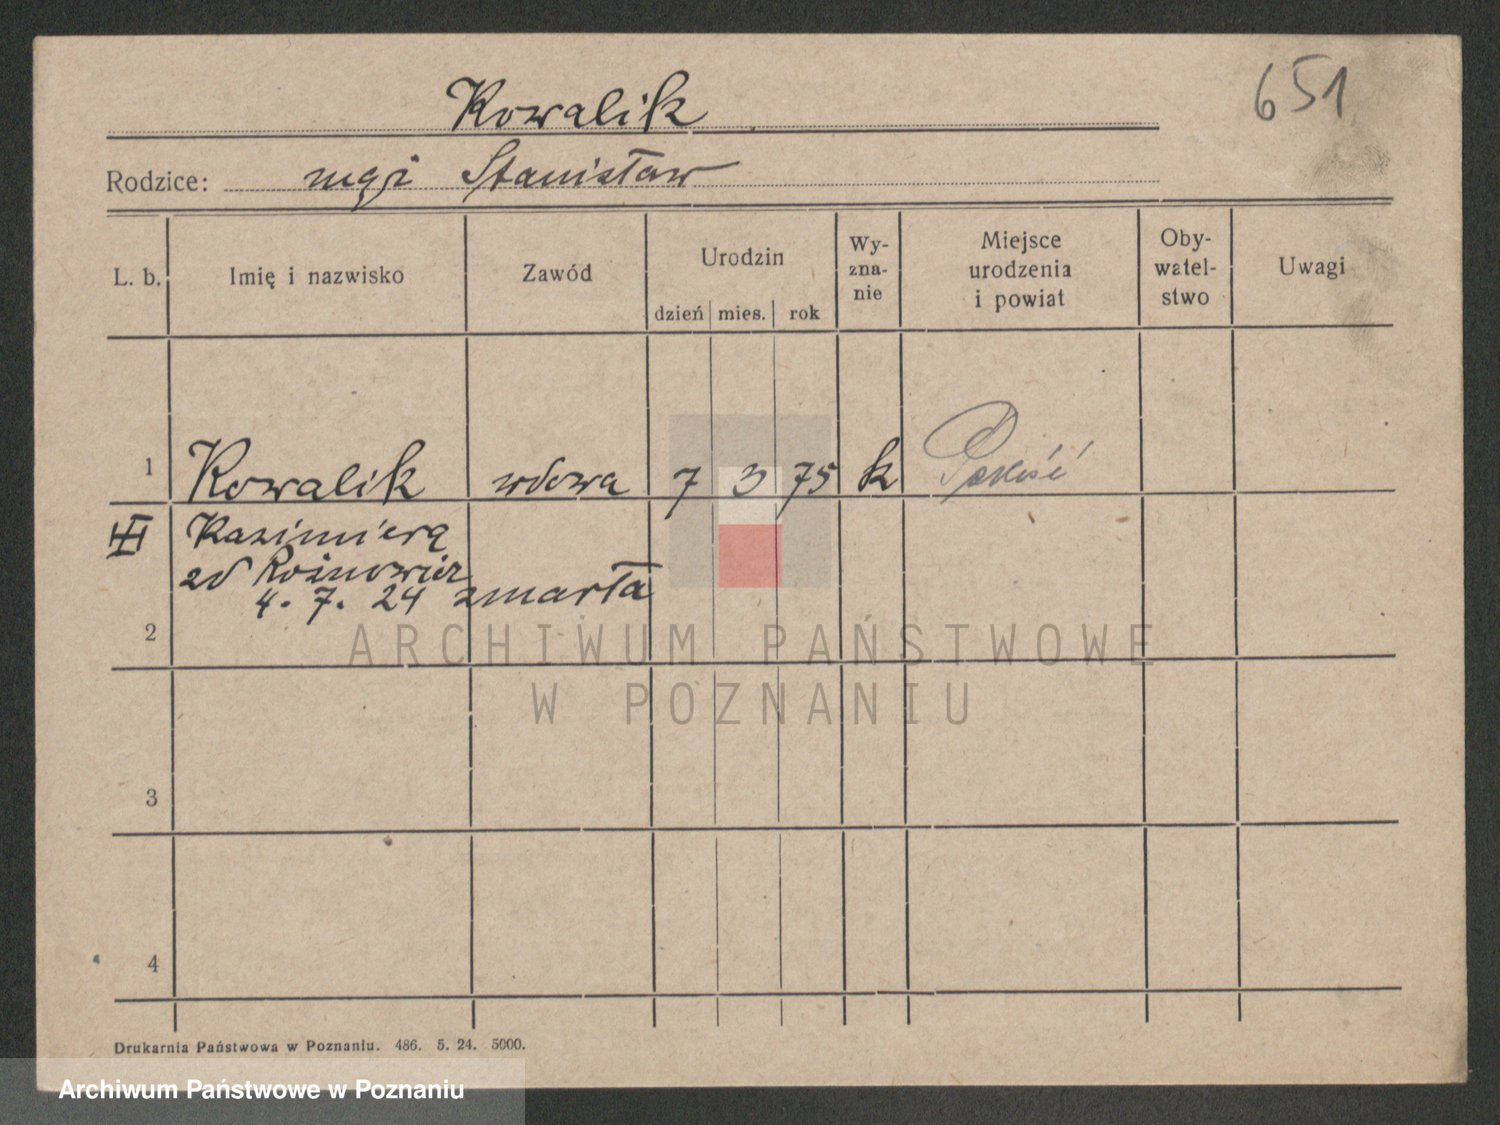 651
Kowalik
Rodzice: mąż Stanisław
L. b. Imię i nazwisko Zawód Urodzin dzień mies. rok Wy-zna-nie Miejsce urodzenia i powiat Oby-watel-stwo Uwagi
1 Kowalik wdowa 7 3 75 k Pakość
Kazimiera
zd Rożnowicz
4. 7. 24 zmarła
2
3
4
Drukarnia Państwowa w Poznaniu. 486. 5. 24. 5000.
ARCHIWUM PAŃSTWOWE
W POZNANIU
Archiwum Państwowe w Poznaniu